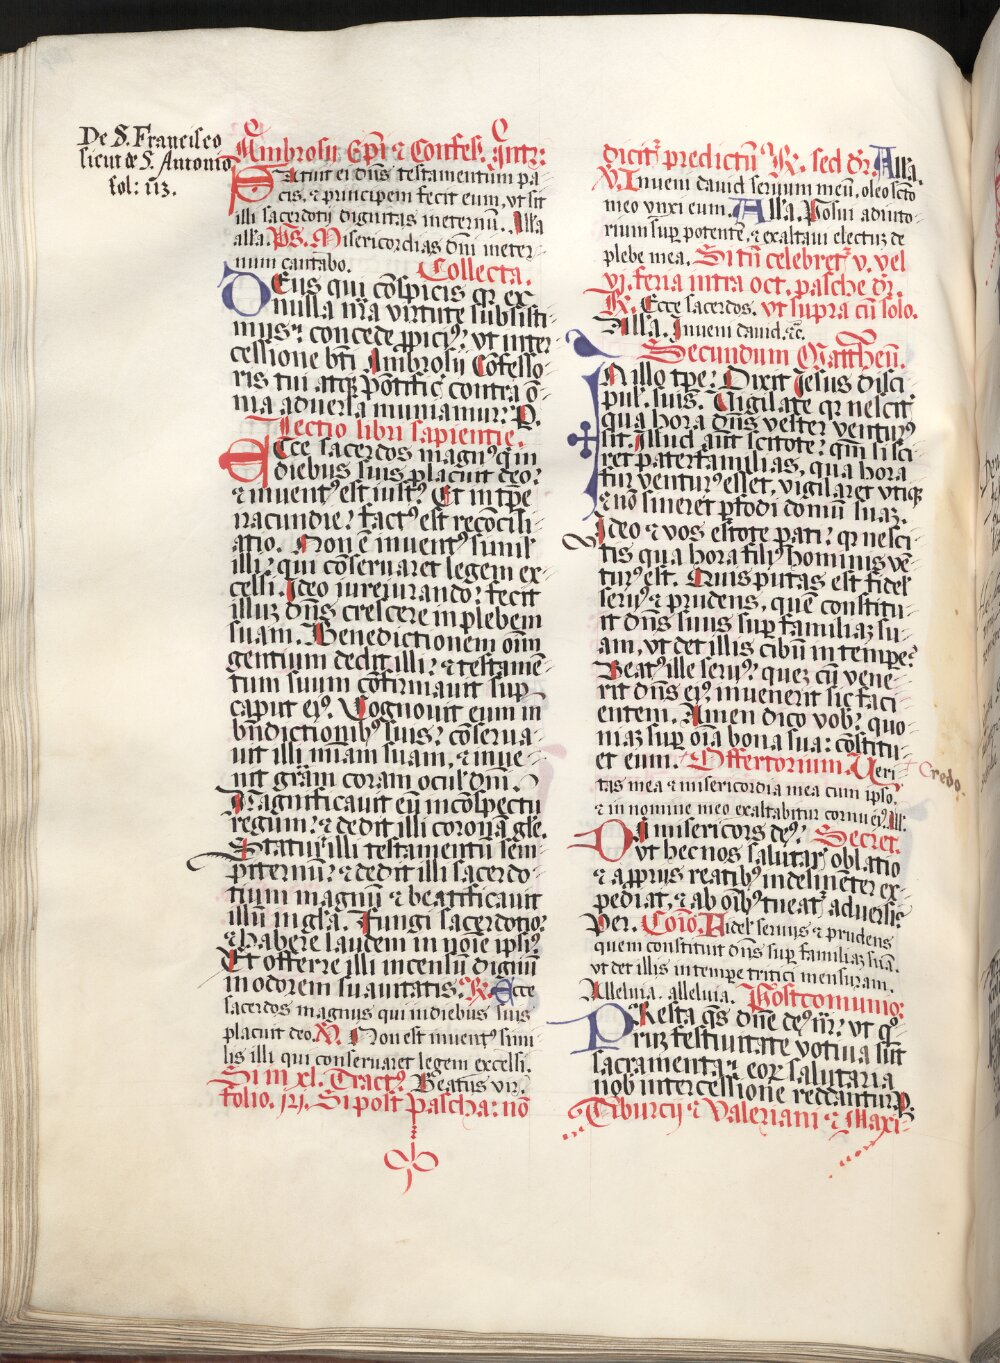 De S. Francisco
sicut de S. Antonio
fol: 113.
Ambrosij Ep̄i ⁊ Confes. Intr:
Statuit ei dn̄s testamentum pa-
cis, ⁊ principem fecit eum, vt sit
illi sacerdotij dignitas in eternū. Alľa
alľa. Ps. Misericordias dn̄i in eter-
num cantabo. Collecta.
DEus qui cōspicis qr ex
nulla nr̄a virtute subsisti-
mus: concede ꝓpiciꝰ: vt inter-
cessione bt̄i Ambrosij Cōfesso-
ris tui atqꝫ Pōtific̄ contra ō-
nia aduersa muniamur: P.
Lectio libri sapientie.
ECce sacerdos magnꝰ q̄ in
diebus suis placuit deo:
⁊ inuentꝰ est iustꝰ Et in tp̄e
iracundie: factꝰ est recōcili-
atio. Non ē inuentꝰ simil̄
illi: qui cōseruaret legem ex-
celsi. Ideo iureiurando: fecit
illuꝫ dn̄s crescere in plebem
suam. Benedictionem om̄
gentium dedit illi: ⁊ testamē-
tum suum cōfirmauit sup̄
caput eiꝰ. Cognouit eum in
bn̄dictionibꝰ suis: cōserua-
uit illi mīam suam, ⁊ inue-
nit grām coram ocul̄ dn̄i.
Magnificauit eū in cōspectu
regum: ⁊ dedit illi coronā gl̄e.
Statuit illi testamentū sem-
piternū: ⁊ dedit illi sacerdo-
tium magnū ⁊ beatificauit
illū in gl̄a. Fungi sacerdotio:
⁊ habere laudem in noīe ipsiꝰ
Et offerre illi incensū dignū
in odorem suauitatis. R. Ecce
sacerdos magnus qui in diebus suis
placuit deo. V. Non est inuentꝰ simi-
lis illi qui conseruaret legem excelsi.
Si in xl. Tractꝰ Beatus vir.
folio. Si post Pascha: nō
dicitr̄ predictū R. sed dr̄. Alľa.
V. Inueni dauid seruum meū, oleo sct̄o
meo vnxi eum. Alľa. Posui adiuto-
rium sup̄ potentē, ⁊ exaltaui electuꝫ de
plebe mea. Si tn̄ celebretr̄ v. vel
vi. feria infra oct. pasche dr̄.
R. Ecce sacerdos. vt supra cū solo.
Alľa. Inueni dauid. ⁊c.
Secundum Mattheū.
IN illo tp̄e: Dixit Jesus disci-
pul̄ suis. Vigilate qr nescit̄
qua hora dn̄s vester venturꝰ
sit. Illud aūt scitote: qm̄ si sci-
ret paterfamilias, qua hora
fur venturꝰ esset, vigilaret vtiqꝫ
⁊ nō sineret ꝑfodi domū suaꝫ.
Ideo ⁊ vos estote pati: qr nesci-
tis qua hora filiꝰ hominis vē-
turꝰ est. Quis putas est fidel̄
seruꝰ ⁊ prudens, quē constitu-
it dn̄s suus sup̄ familiaꝫ su-
am, vt det illis cibū in tempe:
Beatꝰ ille seruꝰ: queꝫ cū vene-
rit dn̄s eiꝰ: inuenerit sic faci-
entem. Amen dico vob̄: quo-
niaꝫ sup̄ oīa bona sua: cōstitu-
et eum. Offertorium. Veri-
Credo.
tas mea ⁊ misericordia mea cum ipso.
⁊ in nomine meo exaltabitur cornu eiꝰ. All̄.
DI misericors deꝰ: Secret.
vt hec nos salutar̄ oblatio
⁊ a ꝓprijs reatibꝰ indesinēter ex-
pediat, ⁊ ab oībꝰ tueatr̄ aduersis
Per. Coīo. Fidel̄ seruus ⁊ prudens
quem constituit dn̄s sup̄ familiaꝫ suā.
vt det illis in tempe tritici mensuram.
Alleluia. alleluia. Postcomunio:
PResta qs̄ dn̄e deꝰ nr̄: vt qr̄
sacramentaꝝ eoꝝ salutaria
nob̄ intercessione reddantur. P.
Tiburcij ⁊ Valeriani ⁊ Maxi-